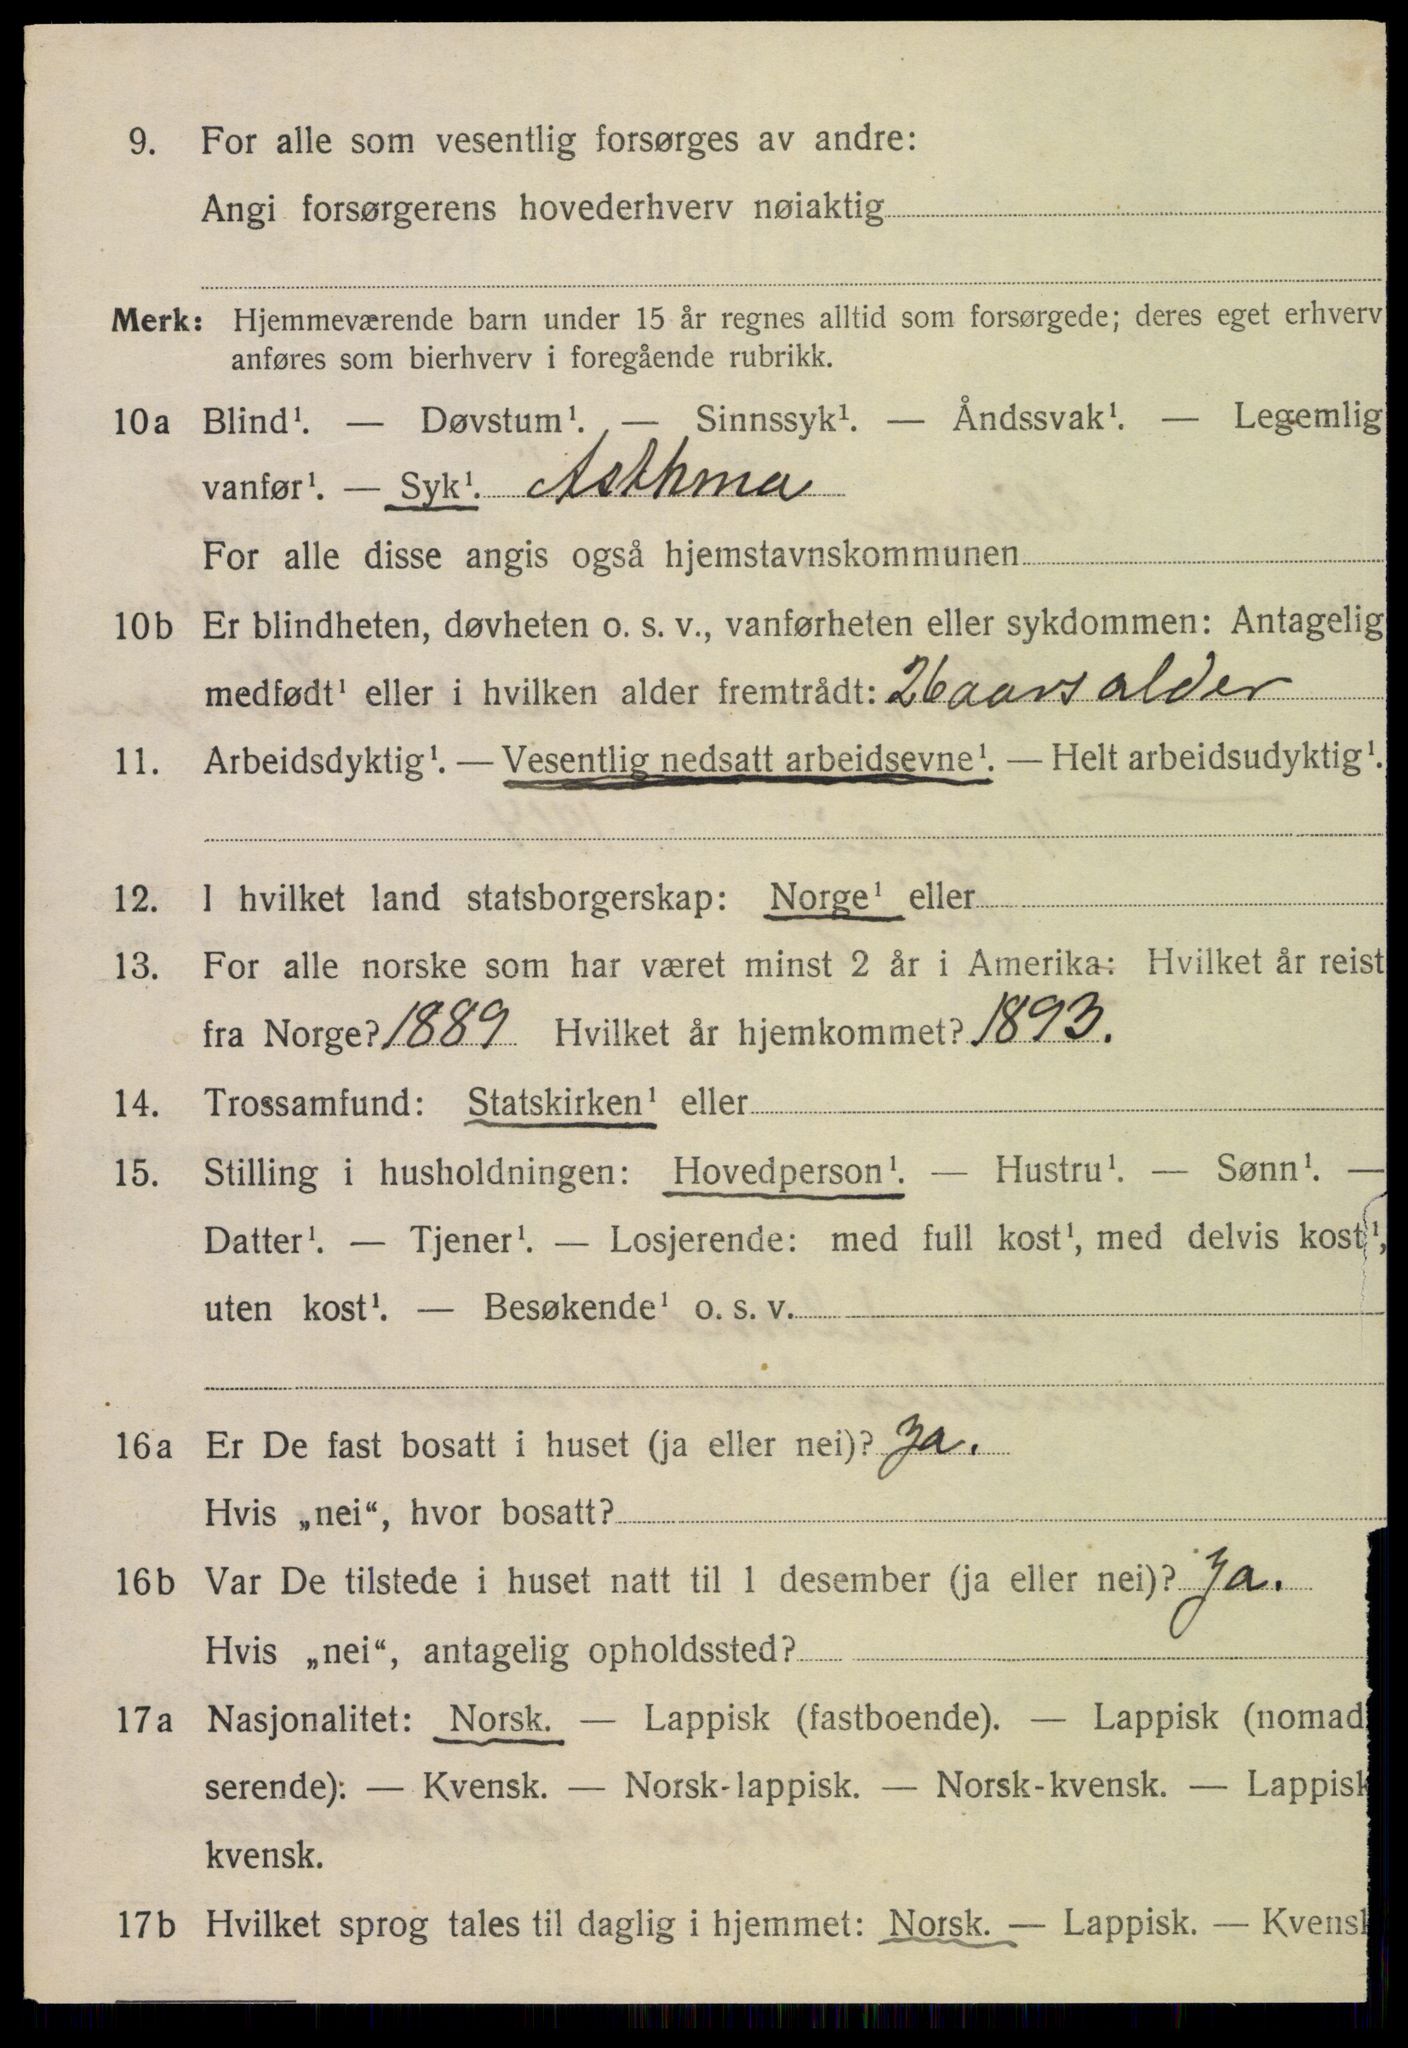 9. For alle som vesentlig forsørges av andre:
Angi forsørgerens hovederhverv nøiaktig
Merk: Hjemmeværende barn under 15 år regnes alltid som forsørgede; deres eget erhverv
anføres som bierhverv i foregående rubrikk.
10a Blind¹. — Døvstum¹. — Sinnssyk¹. — Åndssvak¹. — Legemlig
vanfør¹. — Syk¹. Asthma
For alle disse angis også hjemstavnskommunen
10b Er blindheten, døvheten o. s. v., vanførheten eller sykdommen: Antagelig
medfødt¹ eller i hvilken alder fremtrådt: 26 aars alder
11. Arbeidsdyktig¹. — Vesentlig nedsatt arbeidsevne¹. — Helt arbeidsudyktig¹.
12. I hvilket land statsborgerskap: Norge¹ eller
13. For alle norske som har været minst 2 år i Amerika: Hvilket år reist
fra Norge? 1889 Hvilket år hjemkommet? 1893.
14. Trossamfund: Statskirken¹ eller
15. Stilling i husholdningen: Hovedperson¹. — Hustru¹. — Sønn¹. —
Datter¹. — Tjener¹. — Losjerende: med full kost¹, med delvis kost¹,
uten kost¹. — Besøkende¹ o. s. v.
16a Er De fast bosatt i huset (ja eller nei)? Ja.
Hvis „nei“, hvor bosatt?
16b Var De tilstede i huset natt til 1 desember (ja eller nei)? Ja.
Hvis „nei“, antagelig opholdssted?
17a Nasjonalitet: Norsk. — Lappisk (fastboende). — Lappisk (nomad
serende): — Kvensk. — Norsk-lappisk. — Norsk-kvensk. — Lappisk
kvensk.
17b Hvilket sprog tales til daglig i hjemmet: Norsk. — Lappisk. — Kvensk